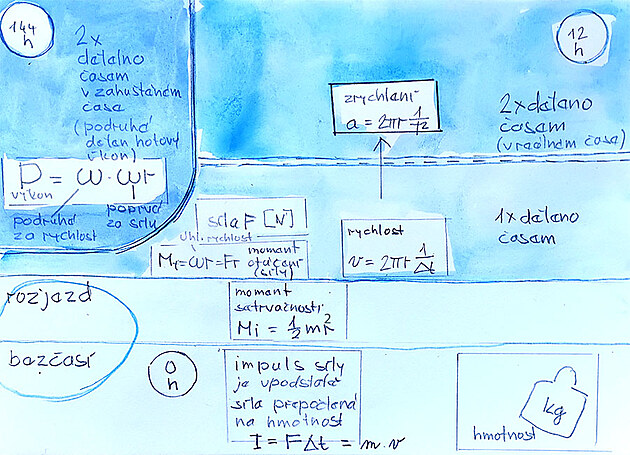 144
h
2x
děláno
časem
v zahuštěném
čase
(podruhé
dělen hotový
výkon)
P = ω · ωr
výkon
podruhé
za rychlost
poprvé
za sílu
12
h
zrychlení
a = 2πr 1/T²
2x děláno
časem
(v reálném čase)
síla F [N]
Uhl. rychlost
M₁ = ωr = Fr
moment
otáčení
(síly)
rychlost
v = 2πr 1/Δt
1x děláno
časem
rozjezd
moment
setrvačnosti
Mi = 1/2 mr²
bezčasí
0
h
impuls síly
je v podstatě
síla přepočtená
na hmotnost
I = F Δt = m.v
kg
hmotnost